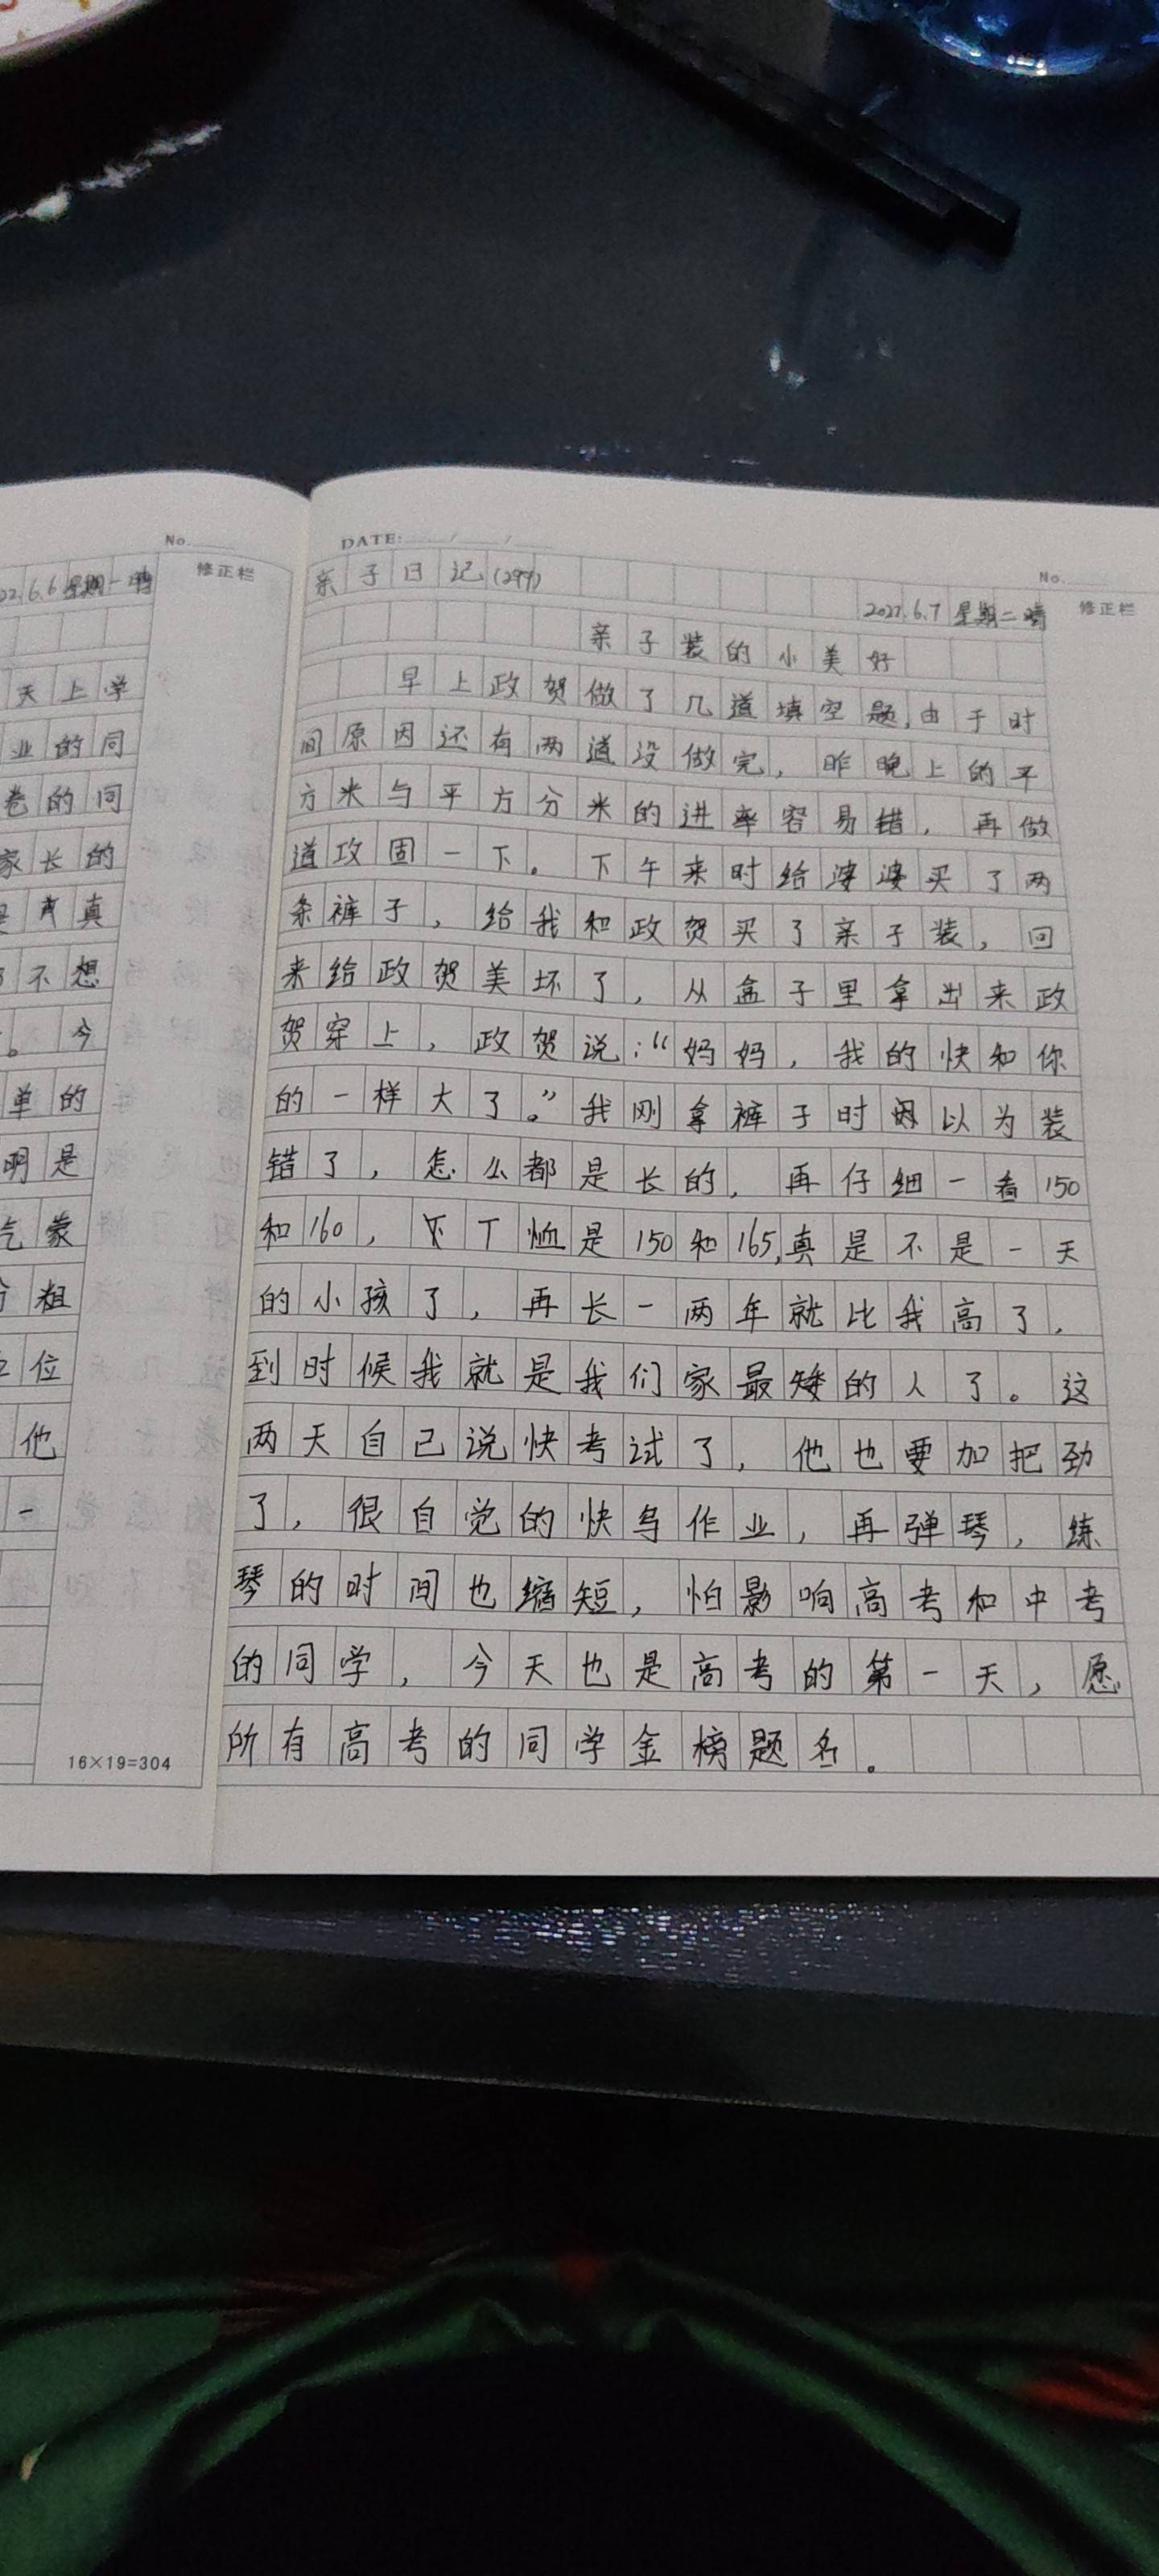 No.
22.6.6 星期一 晴
修正栏
天上学
业的同
卷的同
家长的
真
不想
。今
单的
明是
气蒙
粗
位
他
一
16×19=304
DATE: / /
No.
亲子日记(299)
2022.6.7 星期二 晴
修正栏
亲子装的小美好
早上政贺做了几道填空题,由于时
间原因还有两道没做完，昨晚上的平
方米与平方分米的进率容易错，再做
道攻固一下。下午来时给婆婆买了两
条裤子，给我和政贺买了亲子装，回
来给政贺美坏了，从盒子里拿出来政
贺穿上，政贺说：“妈妈，我的快和你
的一样大了。”我刚拿裤子时以为装
错了，怎么都是长的，再仔细一看150
和160，T恤是150和165,真是不是一天
的小孩了，再长一两年就比我高了，
到时候我就是我们家最矮的人了。这
两天自己说快考试了，他也要加把劲
了，很自觉的快写作业，再弹琴，练
琴的时间也缩短，怕影响高考和中考
的同学，今天也是高考的第一天，愿
所有高考的同学金榜题名。